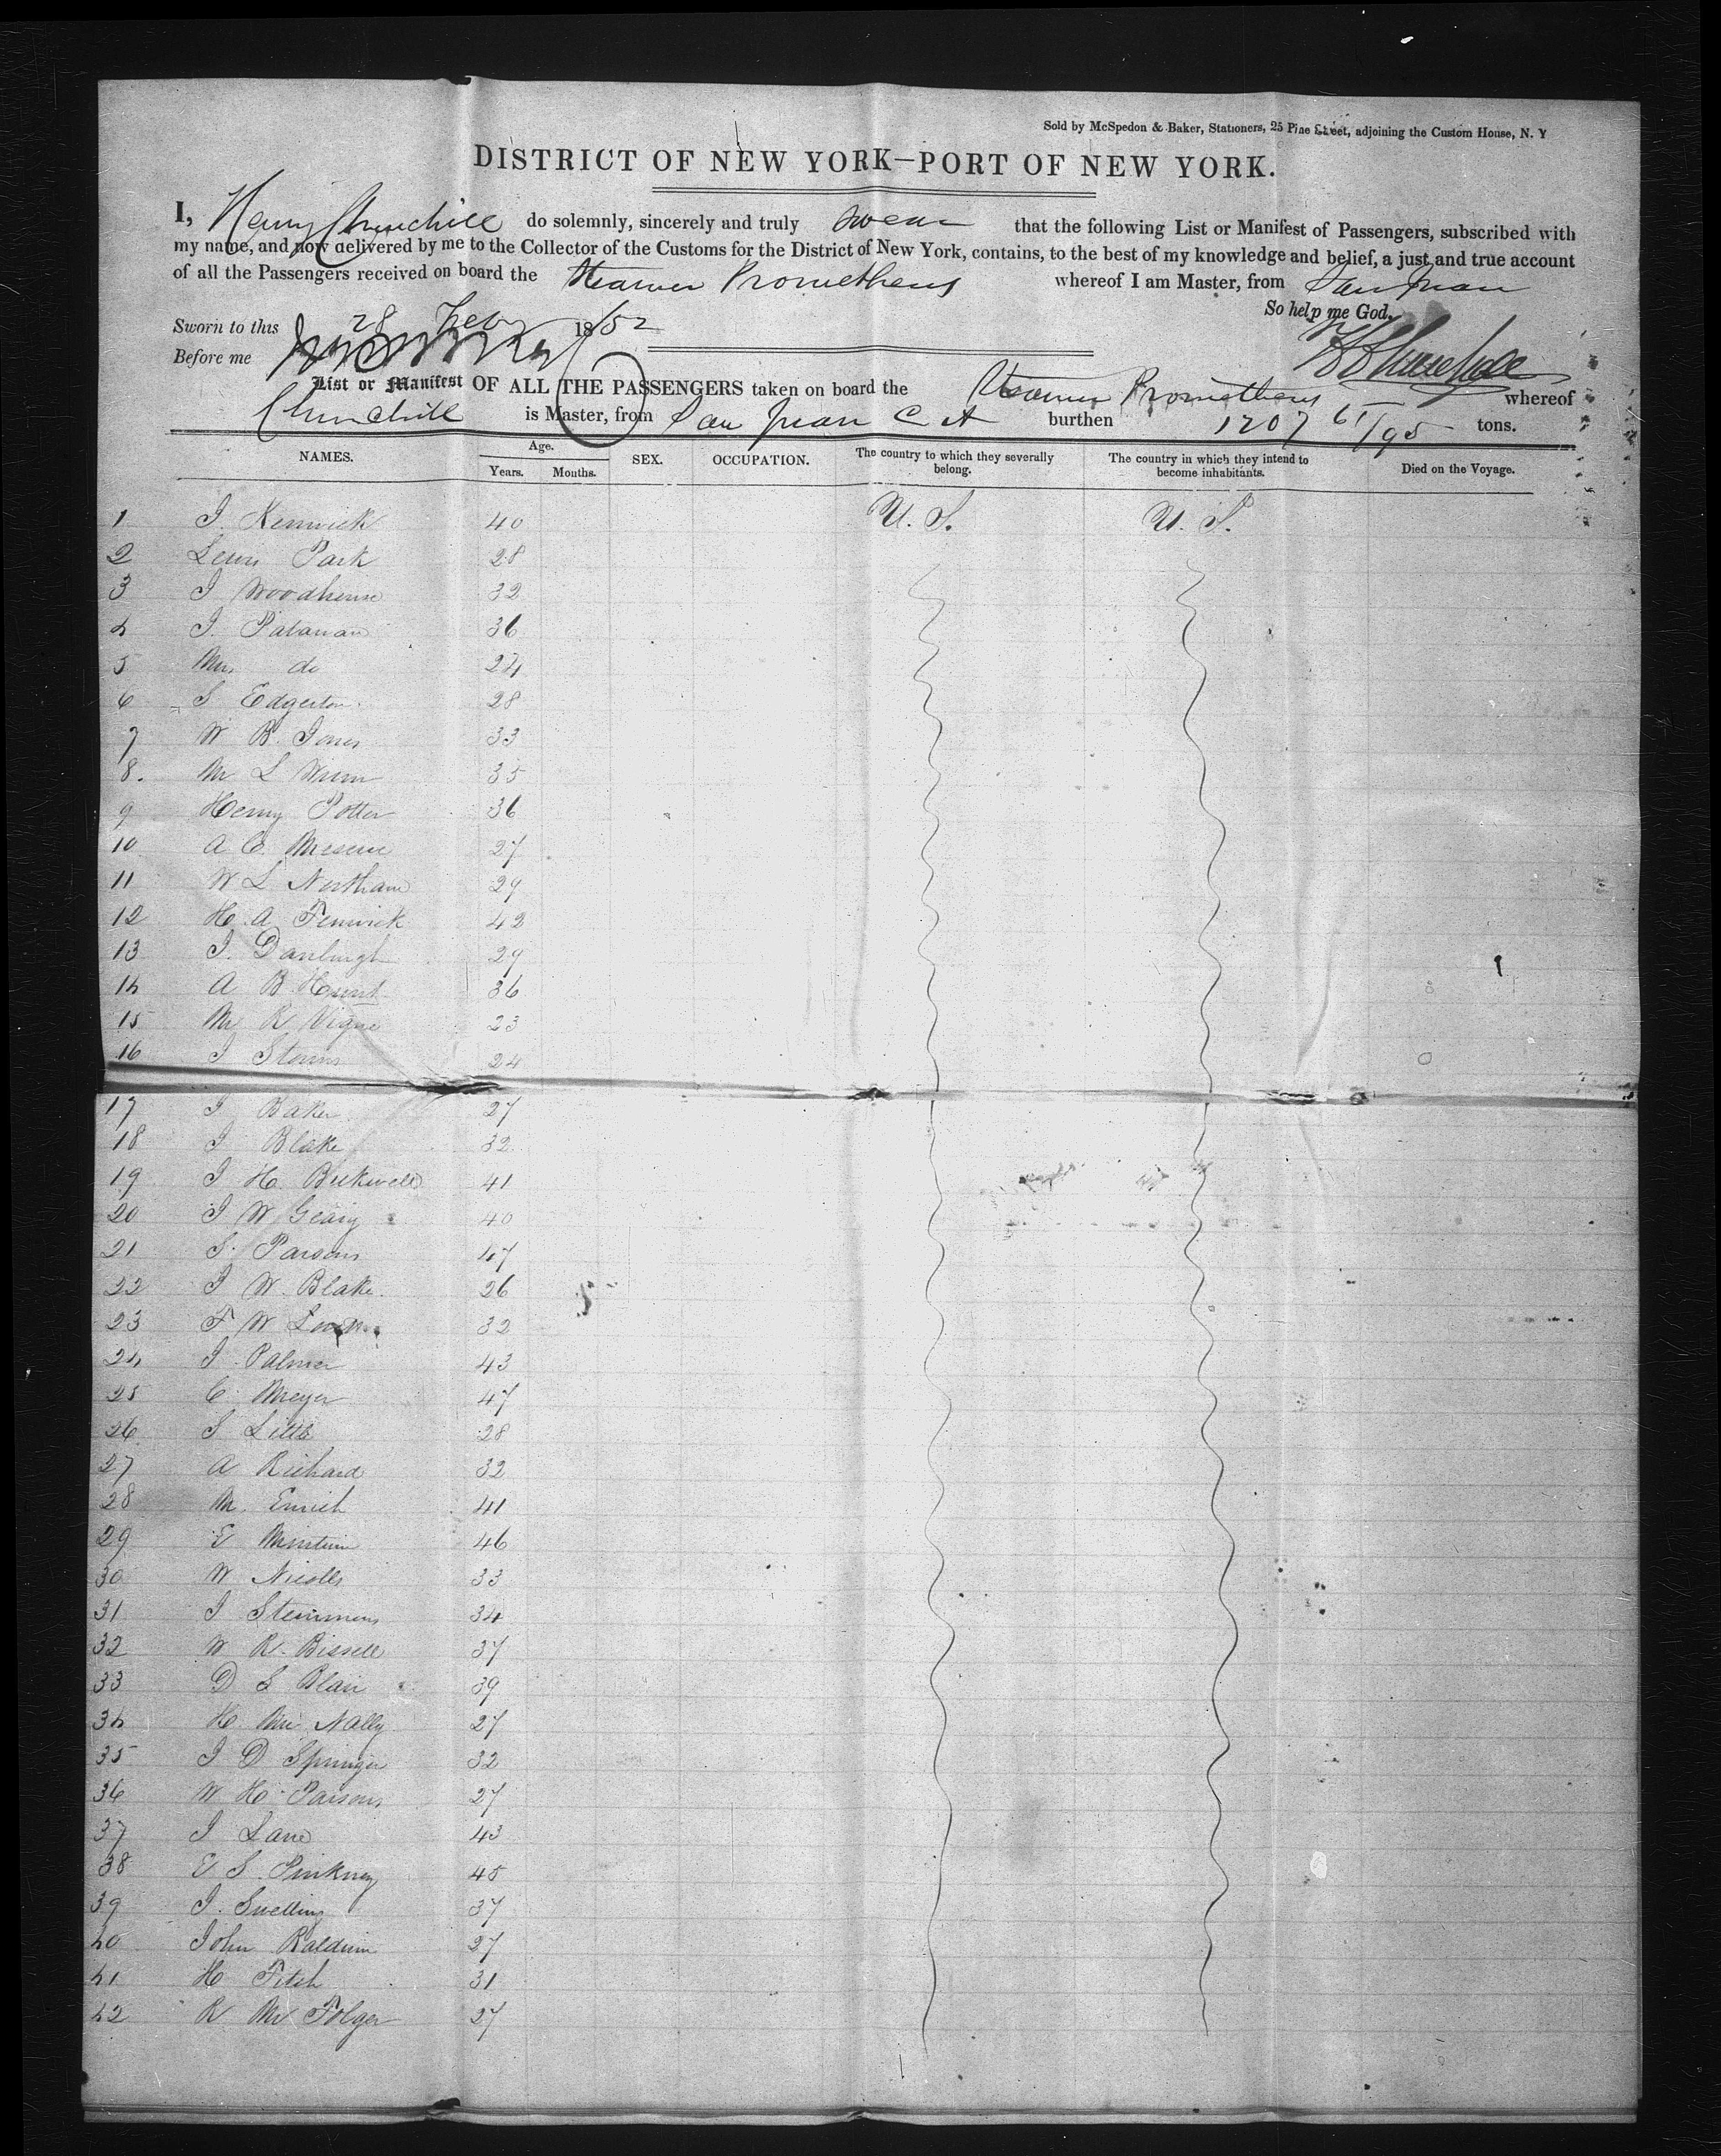 Sold by McSpedon & Baker, Stationers, 25 Pine Street, adjoining the Custom House, N. Y
DISTRICT OF NEW YORK—PORT OF NEW YORK.
I, Henry Churchill do solemnly, sincerely and truly swear that the following List or Manifest of Passengers, subscribed with
my name, and now delivered by me to the Collector of the Customs for the District of New York, contains, to the best of my knowledge and belief, a just and true account
of all the Passengers received on board the Steamer Prometheus whereof I am Master, from San Juan
So help me God.
Sworn to this 28 Feby 1852
Before me
H Churchill
List or Manifest OF ALL THE PASSENGERS taken on board the Steamer Prometheus whereof
Churchill is Master, from San Juan C A burthen 1207 61/95 tons.
NAMES. Age. Years. Months. SEX. OCCUPATION. The country to which they severally belong. The country in which they intend to become inhabitants. Died on the Voyage.
1 J. Kenwick 40 U. S. U. S.
2 Lewis Park 28
3 J Woodhouse 32
4 J. 36
5 Mrs do 24
6 S Edgerton 28
7 W B. Jones 33
8. M L 35
9 Henry Potter 36
10 A C. Meserve 27
11 W L Northam 29
12 H. A Fenwick 42
13 J. Danburgh 29
14 A B Hunt 36
15 R Vigne 23
16 J Storms 24
17 J Baker 27
18 J Blake 32
19 J H. Bickwell 41
20 J W Geary 40
21 S. Parsons 47
22 J W. Blake. 26
23 F W 32
24 J. Palmer 43
25 C. Meyer 47
26 S Little 28
27 A Richard 32
28 M. Emrich 41
29 E 46
30 W Nicolls 33
31 J Stemmens 34
32 W R. Bissell 37
33 D S Blair 39
34 H. Mc Nally 27
35 J D Springer 32
36 W H. Parsons 27
37 J Lane 43
38 E S. Pinkney 45
39 J. Snelling 37
40 John Baldwin 27
41 H Fitch 31
42 R Mc Folger 27